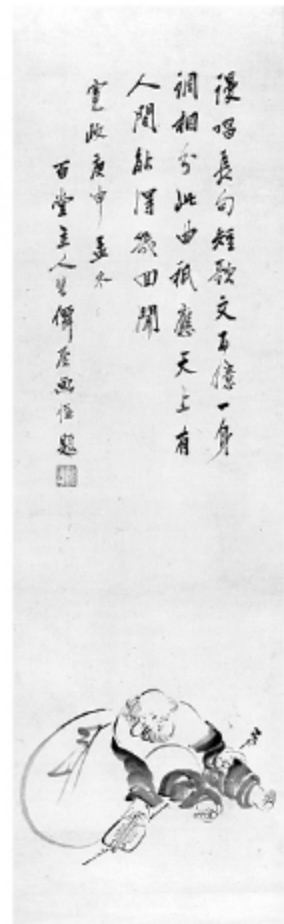 謾唱長句短歌文百億一身
調相分此曲祇應天上有
人間能得幾回聞
寛政庚申孟冬
百堂主人題